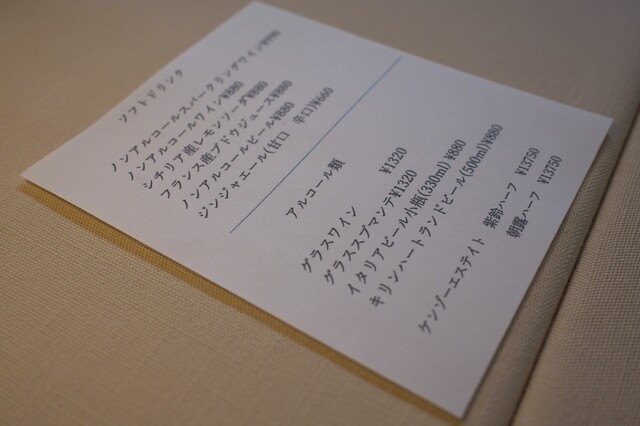 ソフトドリンク
ノンアルコールスパークリングワイン¥990
ノンアルコールワイン¥880
シチリア産レモンソーダ¥880
フランス産ブドウジュース¥880
ノンアルコールビール¥880
ジンジャエール(甘口 辛口)¥660
アルコール類
グラスワイン ¥1320
グラススプマンテ¥1320
イタリアビール小瓶(330ml) ¥880
キリンハートランドビール(500ml)¥880
ケンゾーエステイト 紫鈴ハーフ ¥13750
朝露ハーフ ¥13750